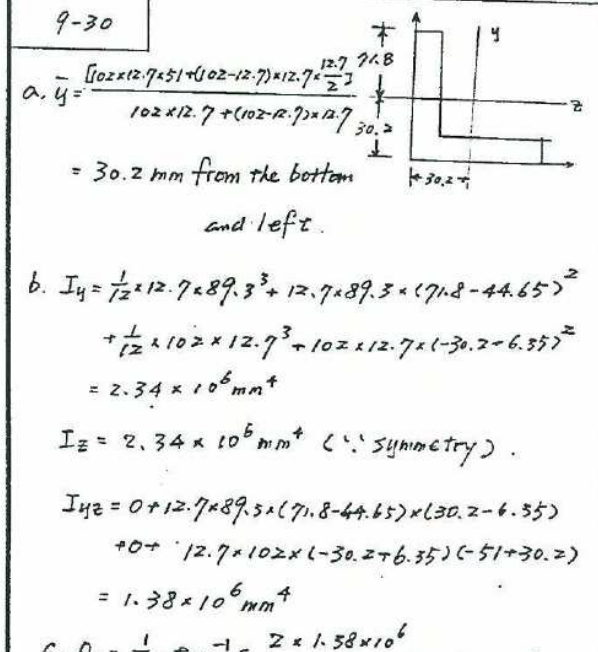 9-30
a. ȳ = [102×12.7×51+(102-12.7)×12.7×12.7/2] / 102×12.7+(102-12.7)×12.7
= 30.2 mm from the bottom
and left.
71.8
30.2
y
z
30.2
b. Iy = 1/12×12.7×89.3³+12.7×89.3×(71.8-44.65)²
+1/12×102×12.7³+102×12.7×(-30.2+6.35)²
= 2.34×10⁶ mm⁴
Iz = 2.34×10⁶ mm⁴ (∵ symmetry).
Iyz = 0+12.7×89.3×(71.8-44.65)×(30.2-6.35)
+0+ 12.7×102×(-30.2+6.35)(-51+30.2)
= 1.38×10⁶ mm⁴
2×1.38×10⁶